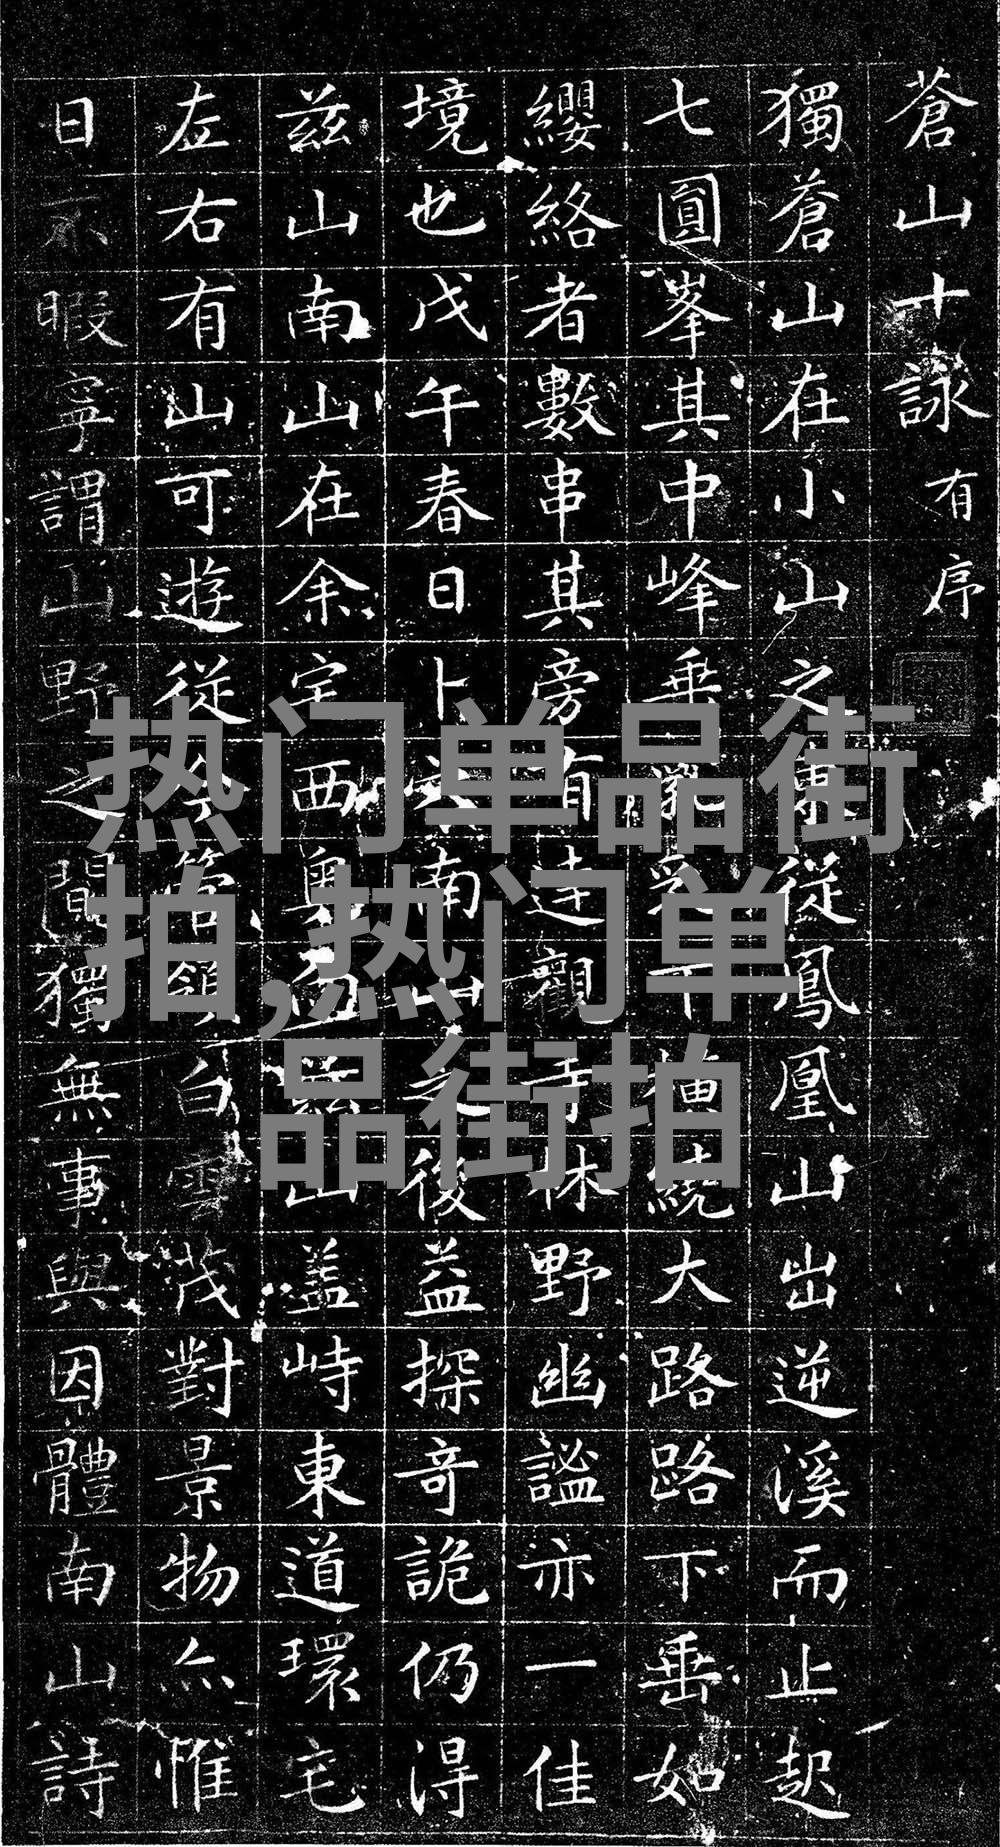 蒼山十詠 有序
獨蒼山在小山之東從鳳凰山出逆溪而止起
七圓峯其中峰垂下橫繞大路路下垂如
纓絡者數串其旁有達觀寺林野幽謐亦一佳
境也戊午春日卜南山之後益探奇詭仍得
茲山南山在余宅西奧茲山盖峙東道環宅
左右有山可遊從今管領白雲茂對景物亦惟
日不暇寧謂山野之間獨無事與因體南山詩
热门单品街
拍,热门单
品街拍